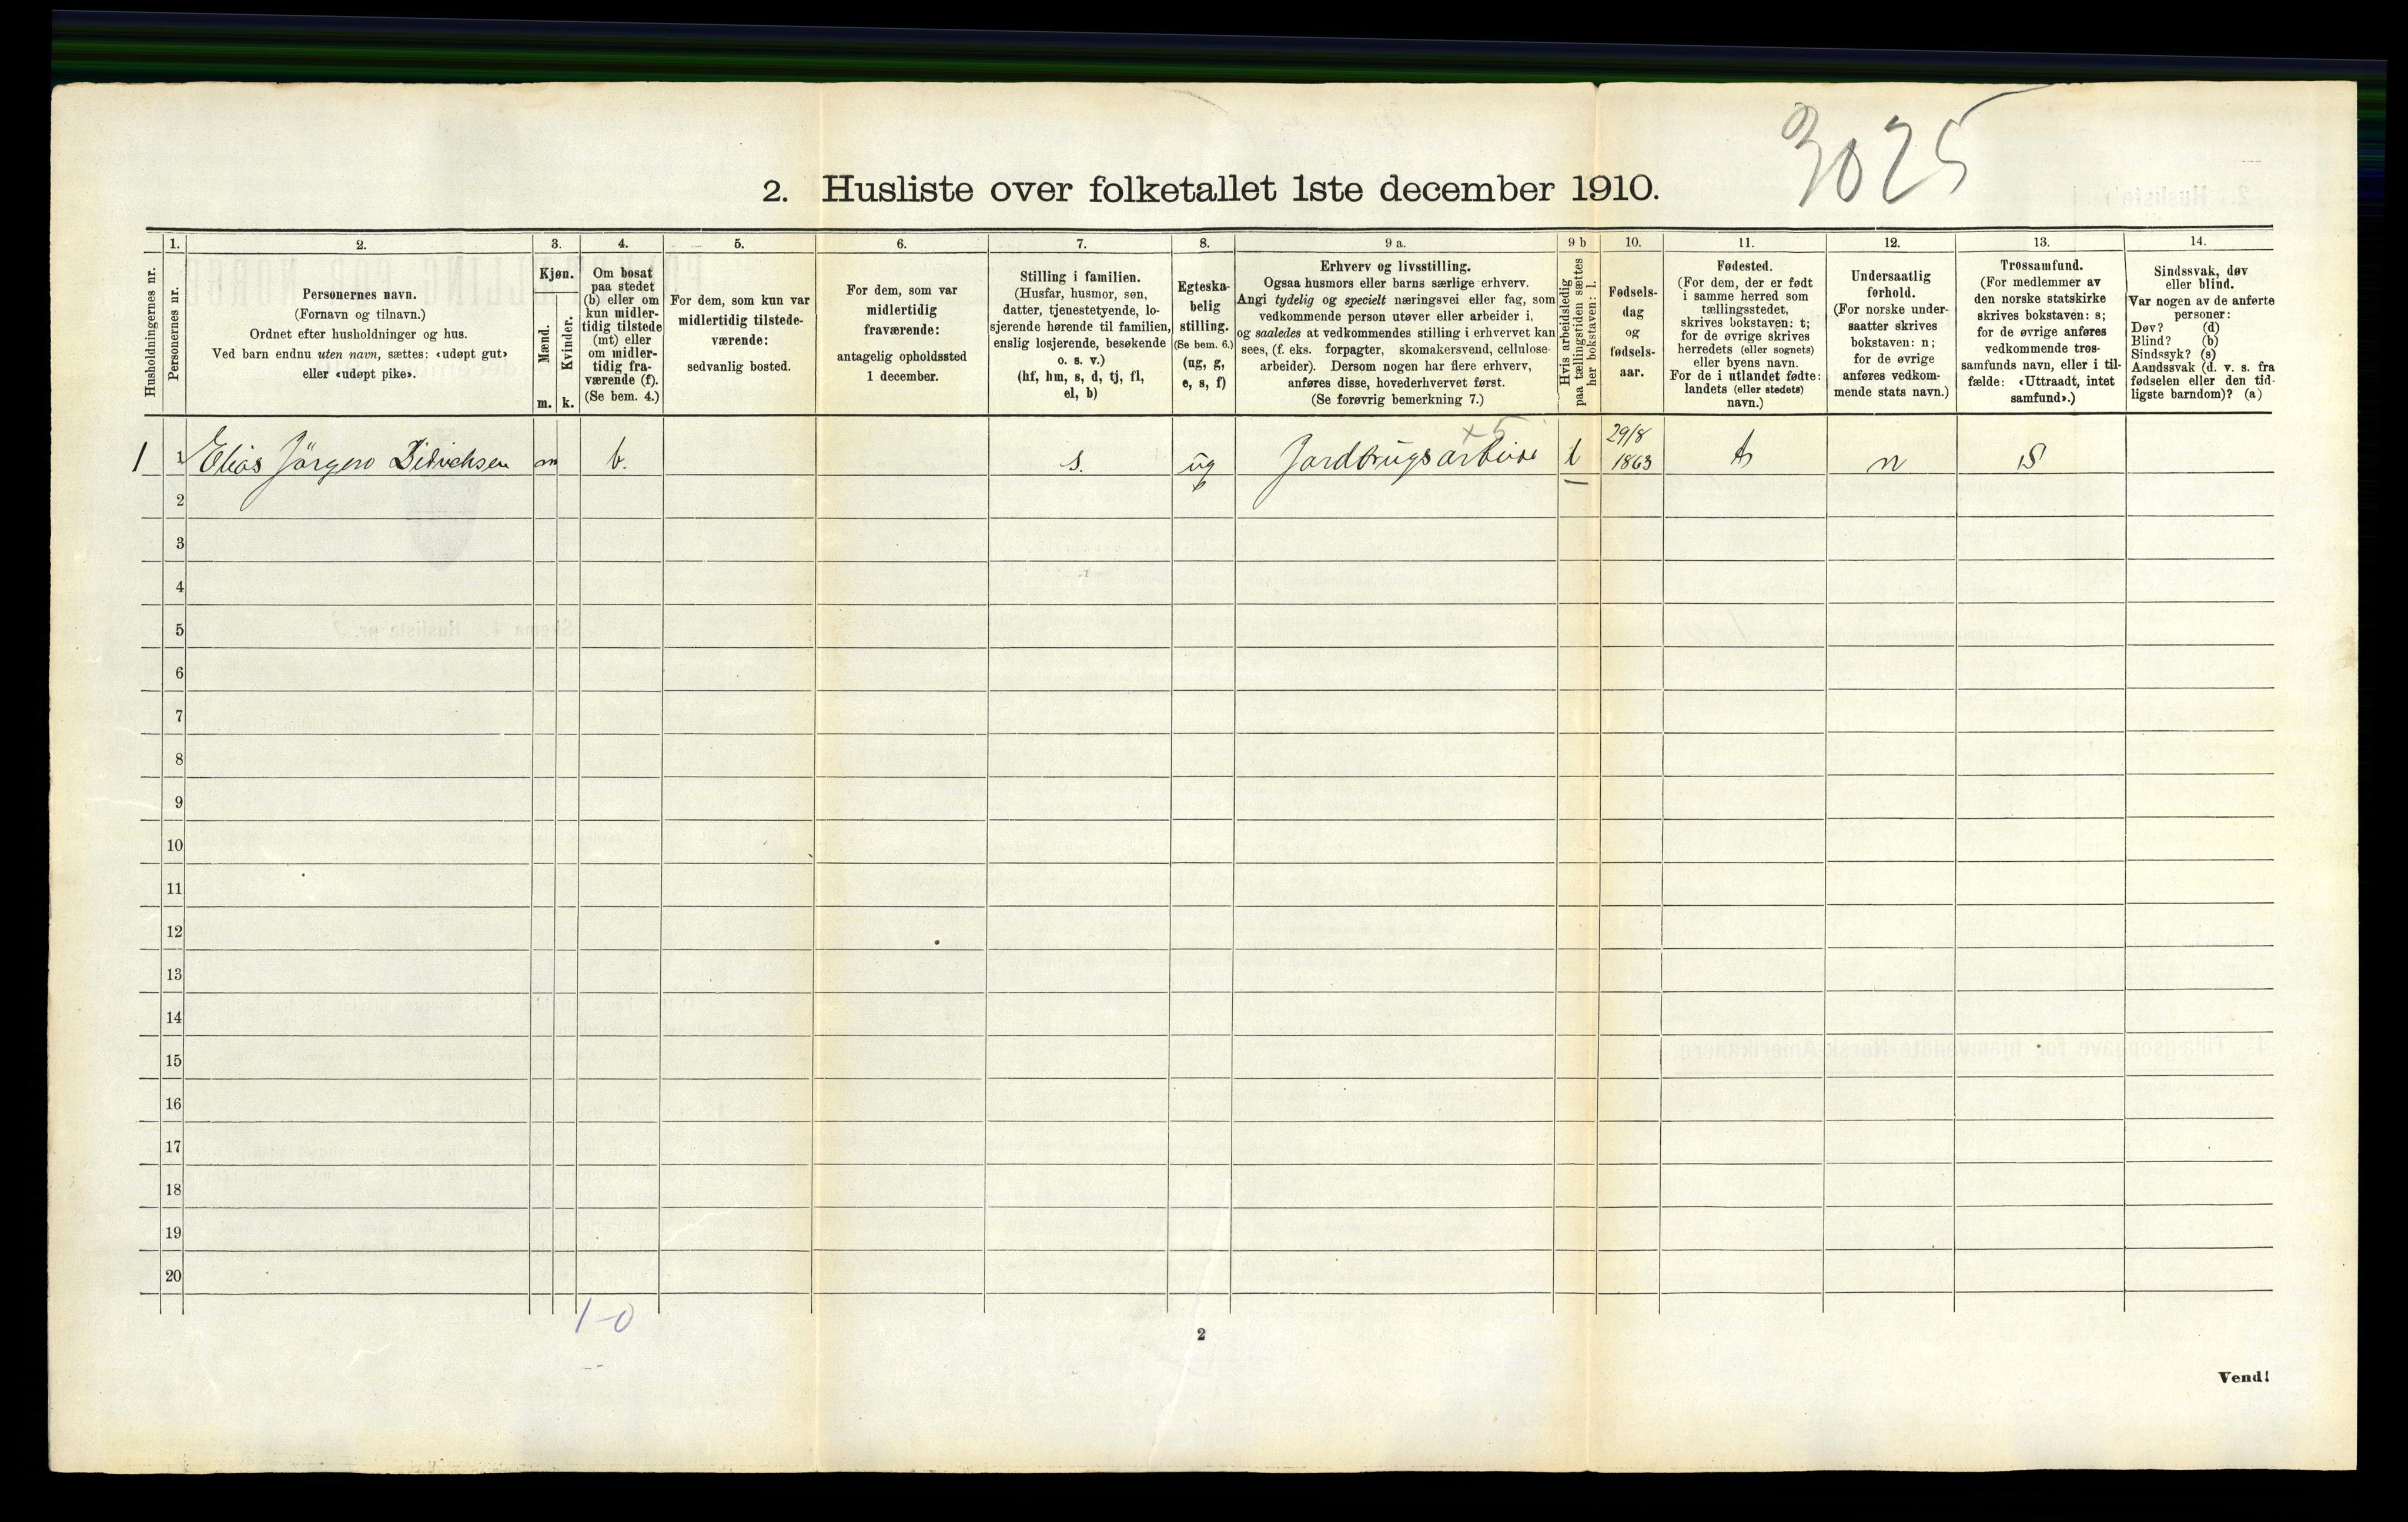 3025
2. Husliste over folketallet 1ste december 1910.
Husholdningernes nr.
1.
Personernes nr.
2.
Personernes navn.
(Fornavn og tilnavn.)
Ordnet efter husholdninger og hus.
Ved barn endnu uten navn, sættes: «udøpt gut»
eller «udøpt pike».
3.
Kjøn.
Mænd.
Kvinder.
m. k.
4.
Om bosat
paa stedet
(b) eller om
kun midler-
tidig tilstede
(mt) eller
om midler-
tidig fra-
værende (f).
(Se bem. 4.)
5.
For dem, som kun var
midlertidig tilstede-
værende:
sedvanlig bosted.
6.
For dem, som var
midlertidig
fraværende:
antagelig opholdssted
1 december.
7.
Stilling i familien.
(Husfar, husmor, søn,
datter, tjenestetyende, lo-
sjerende hørende til familien,
enslig losjerende, besøkende
o. s. v.)
(hf, hm, s, d, tj, fl,
el, b)
8.
Egteska-
belig
stilling.
(Se bem. 6.)
(ug, g,
e, s, f)
9 a.
Erhverv og livsstilling.
Ogsaa husmors eller barns særlige erhverv.
Angi tydelig og specielt næringsvei eller fag, som
vedkommende person utøver eller arbeider i,
og saaledes at vedkommendes stilling i erhvervet kan
sees, (f. eks. forpagter, skomakersvend, cellulose-
arbeider). Dersom nogen har flere erhverv,
anføres disse, hovederhvervet først.
(Se forøvrig bemerkning 7.)
9 b
Hvis arbeidsledig
paa tællingstiden sættes
her bokstaven: l.
10.
Fødsels-
dag
og
fødsels-
aar.
11.
Fødested.
(For dem, der er født
i samme herred som
tællingsstedet,
skrives bokstaven: t;
for de øvrige skrives
herredets (eller sognets)
eller byens navn.
For de i utlandet fødte:
landets (eller stedets)
navn.)
12.
Undersaatlig
forhold.
(For norske under-
saatter skrives
bokstaven: n;
for de øvrige
anføres vedkom-
mende stats navn.)
13.
Trossamfund.
(For medlemmer av
den norske statskirke
skrives bokstaven: s;
for de øvrige anføres
vedkommende tros-
samfunds navn, eller i til-
fælde: «Uttraadt, intet
samfund».)
14.
Sindssvak, døv
eller blind.
Var nogen av de anførte
personer:
Døv? (d)
Blind? (b)
Sindssyk? (s)
Aandssvak (d. v. s. fra
fødselen eller den tid-
ligste barndom)? (a)
x 5 29/8
1 1 Elias Jörgen Didrichsen m b. s. ug Jordbrugsarbeide l 1863 t n S
2
3
4
5
6
7
8
9
10
11
12
13
14
15
16
17
18
19
20
1-0
2
Vend!